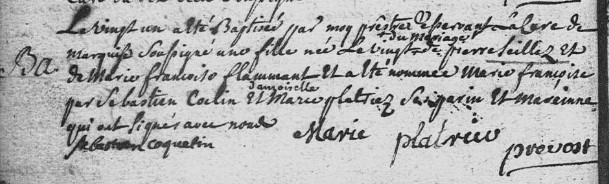 Le vingt un a été Baptisée par moy prestre deservant la Cure de
Marquise soussigné une fille née Le vingt du mariage de pierre seillez Et
Ba
de Marie françoise flammant Et a été nommée Marie françoise
par Sebastien Et damoiselle Marie platriez Ses parin Et Mareinne
qui ont signés avec nous Marie platriez
sebastien coquelin
prevost